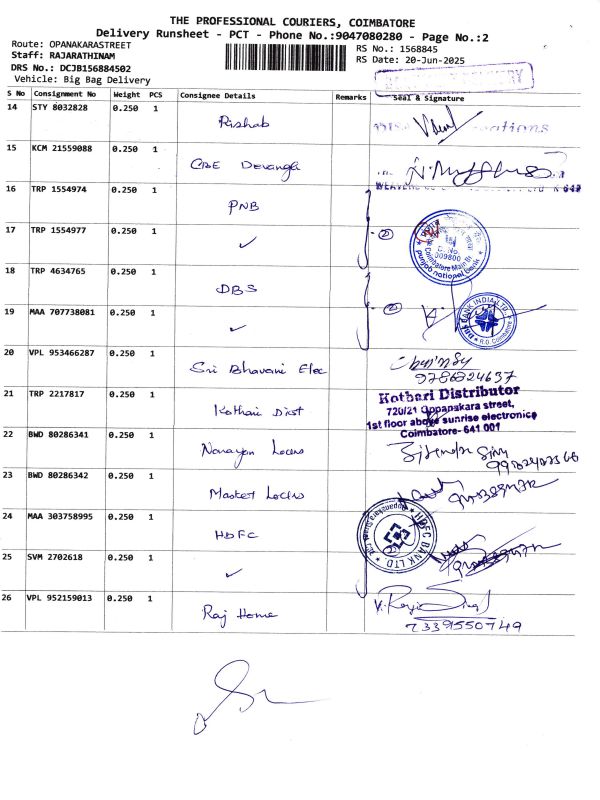 THE PROFESSIONAL COURIERS, COIMBATORE
Delivery Runsheet - PCT - Phone No.:9047080280 - Page No.:2
Route: OPANAKARASTREET
Staff: RAJARATHINAM
DRS No.: DCJB156884502
Vehicle: Big Bag Delivery
RS No.: 1568845
RS Date: 20-Jun-2025
S No Consignment No Weight PCS Consignee Details Remarks Seal & Signature
14 STY 8032828 0.250 1 Rishab
15 KCM 21559088 0.250 1 CBE Devangh
16 TRP 1554974 0.250 1 PNB
17 TRP 1554977 0.250 1 ✓ 2
Coimbatore Main Br
D. No.
309800
punjab national bank
18 TRP 4634765 0.250 1 DBS
19 MAA 707738081 0.250 1 ✓ 2
DBS BANK INDIA LTD.
R.O. Coimbatore
20 VPL 953466287 0.250 1 Sri Bhavani Elec
9786824637
21 TRP 2217817 0.250 1 Kothari Dist
Kothari Distributor
720/21 Oppanakara street,
1st floor above sunrise electronics
Coimbatore- 641 001
22 BWD 80286341 0.250 1 Narayan Locks
23 BWD 80286342 0.250 1 Market Locks
24 MAA 303758995 0.250 1 HDFC
HDFC BANK LTD
Oppanakara Street
25 SVM 2702618 0.250 1 ✓
26 VPL 952159013 0.250 1 Raj Home
7339550749